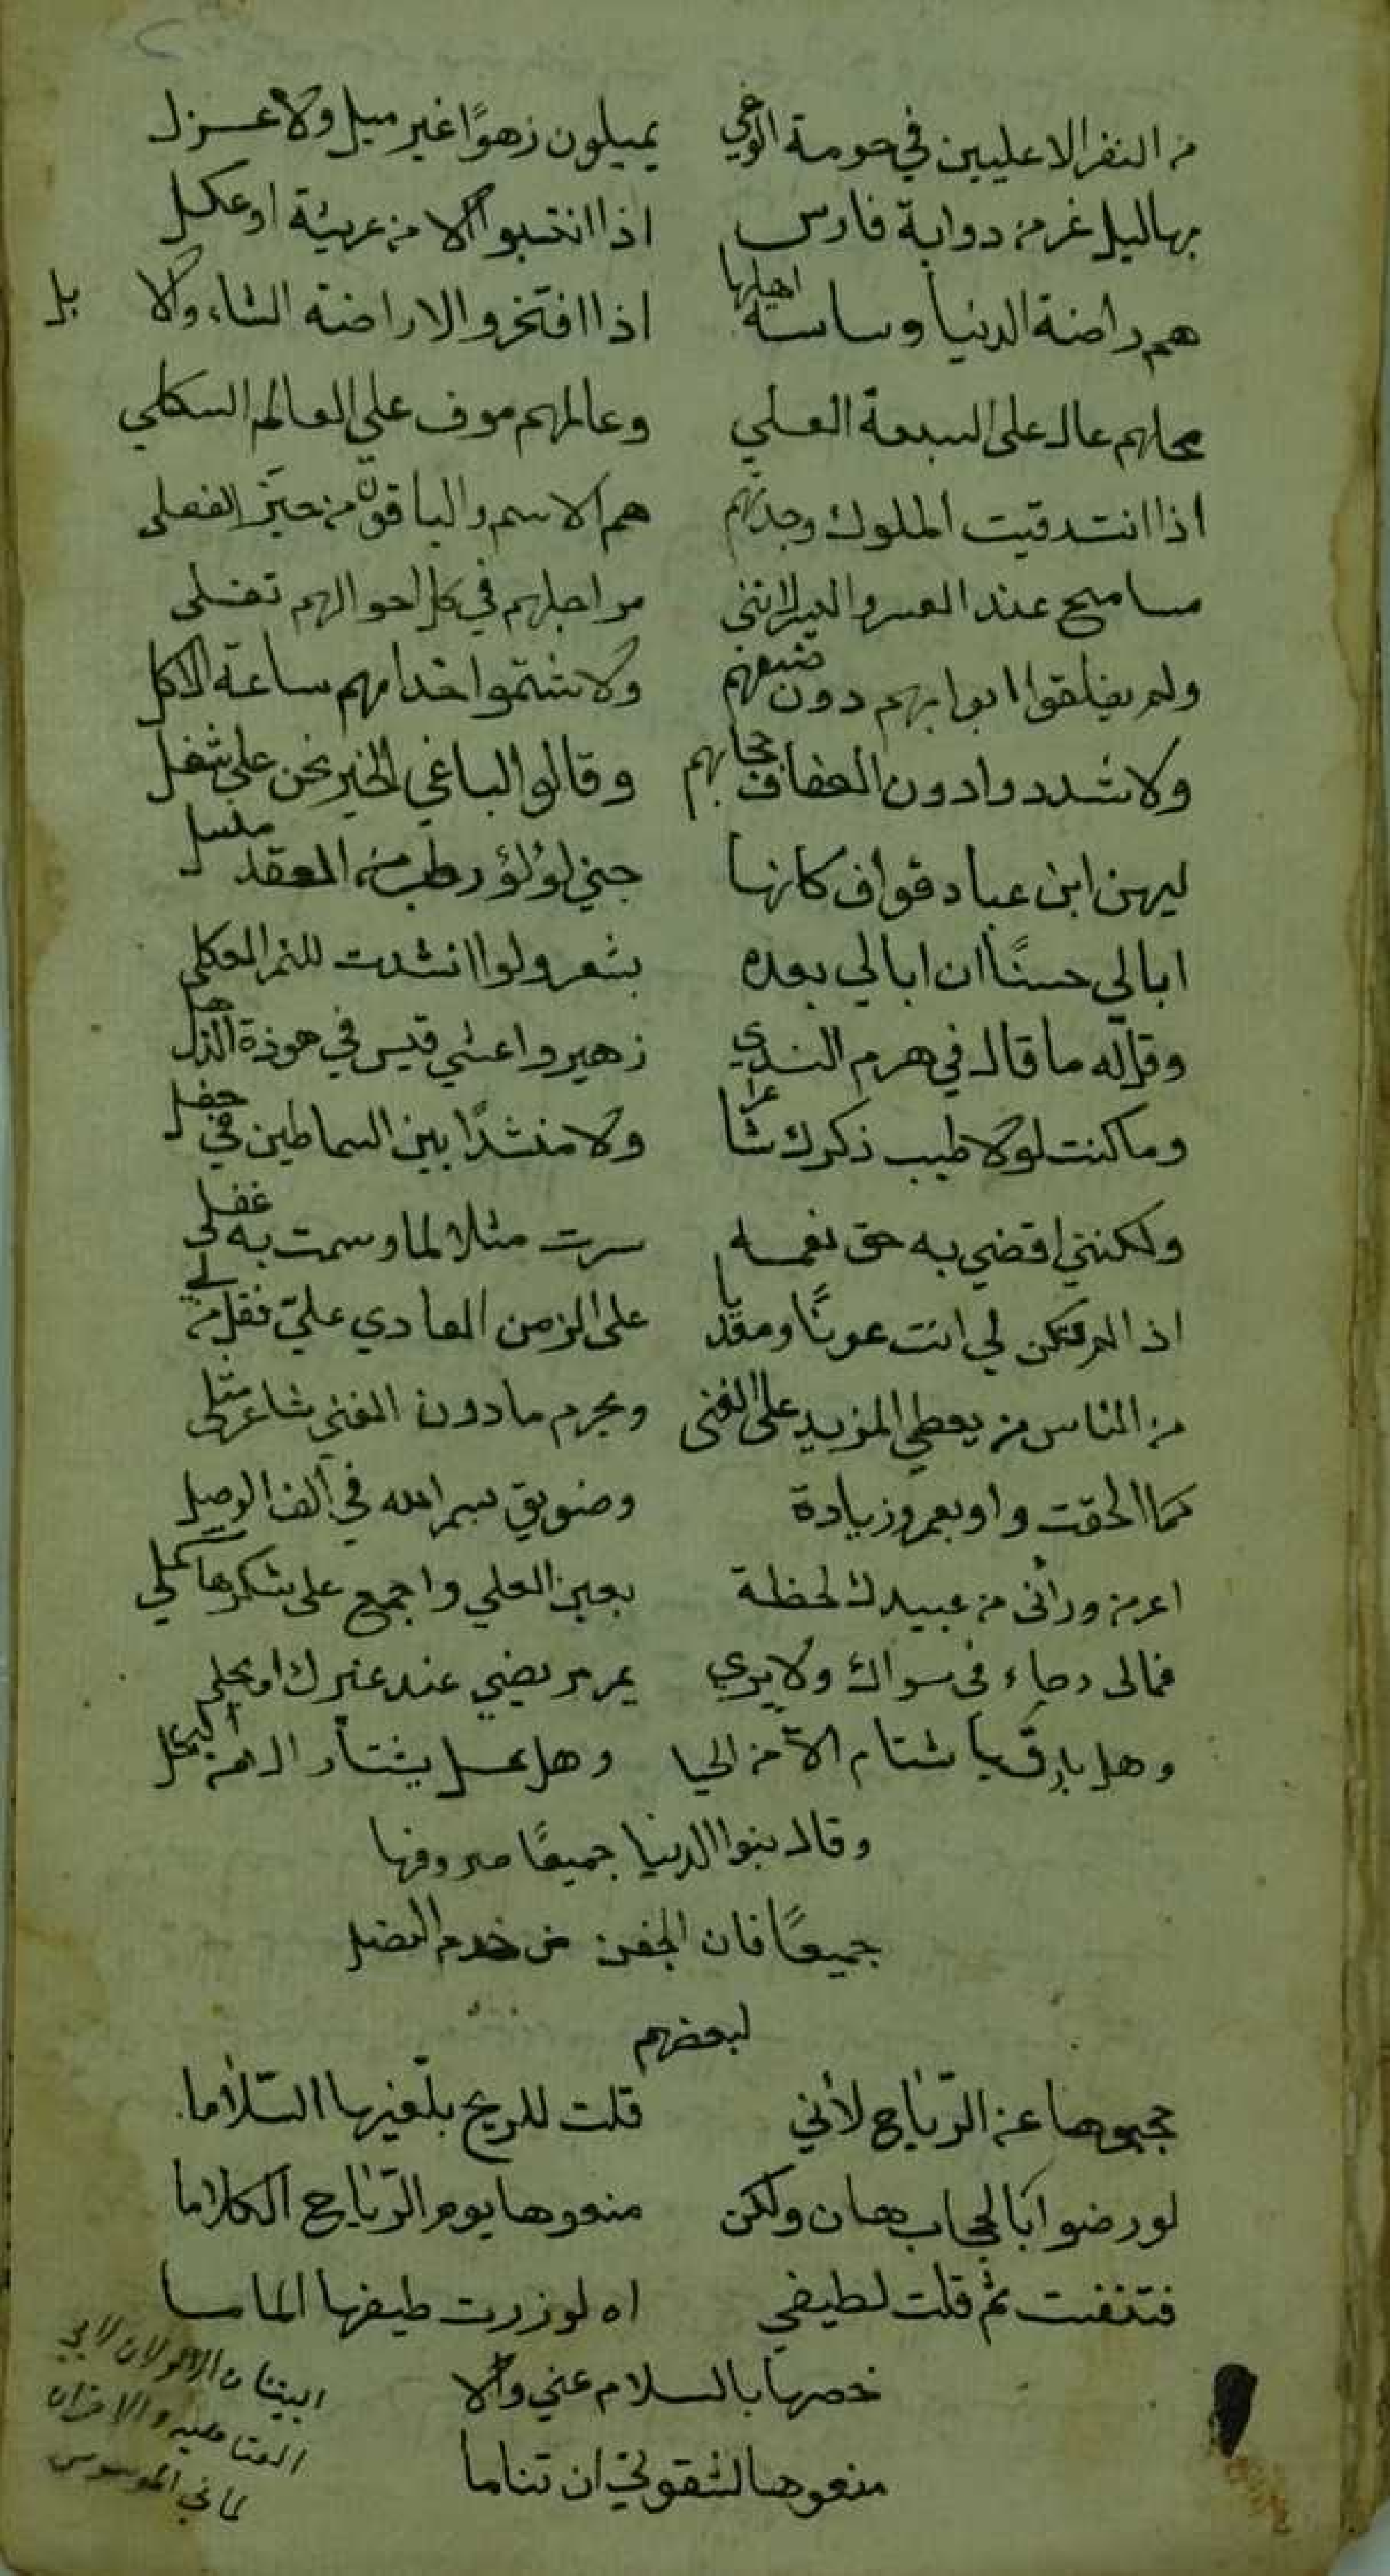 من النفر الاعليين في حومة الوغى يميلون زهوًا غير ميل ولا عزل
بهاليل غر من دوابة فارس اذا انتسبوا لا من عرينة او عكل
هم راضة الدنيا وساسة اهلها اذا افتخروا لا راضة الشاء والابل
محلهم عال على السبعة العلي وعالمهم موف على العالم السكلي
اذا انت رقيت الملوك وجدتهم هم الاسم والباقون من حيّز الفعلي
مساميح عند العسر واليسر لا تني مراجلهم في كل احوالهم تغلى
ولم يغلقوا ابوابهم دون ضيفهم ولا شتموا خدامهم ساعة الاكل
ولا شددوا دون العفاة حجابهم وقالوا لباغي الخير نحن على شغل
ليهن ابن عباد قواف كانها جنى لؤلؤ رطب من العقد منسل
ابا لي حسنًا ان ابالي بعده بشعر ولو انشدت للنمر العكلي
وقل له ما قال في هرم الندي زهير واعشي قيس في هوذة الذهل
وما كنت لولا طيب ذكرك شاعرا ولا منشدًا بين السماطين في حفل
ولكنني اقضي به حق نعمه سرت مثلا لما وسمت به غفلي
اذا لم تكن لي انت عونًا ومعديا على الزمن العادي عليّ فقل من لي
من الناس من يعطي المزيد على الغنى ويحرم ما دون الغني شاعر مثلى
كما الحقت واو بعمرو زيادة وضويق بسم الله في الف الوصل
اعر من ورائى من عبيدك لحظة بعين العلي واجمع على شكرها شملي
فمالى رجاء فى سواك ولا يري يمر مريضي عند غيرك او يحلى
وهل بارق يا شتام الا من الحيا وهل عسل يشتار الا من النحل
وقال بنوا الدنيا جميعًا صروفها
جميعًا فان الجفن من خدم النصل
لبعضهم
حجبوها عن الرّياح لأني قلت للريح بلّغيها السّلاما
لو رضوا بالحجاب هان ولكن منعوها يوم الرّياح الكلاما
فتنفست ثم قلت لطيفي اه لو زرت طيفها الماما
خصها بالسلام عني والا
منعوها لشقوتي ان تناما
البيتان الاولان لابي
العتاهيه والاخران
لماني الموسوس